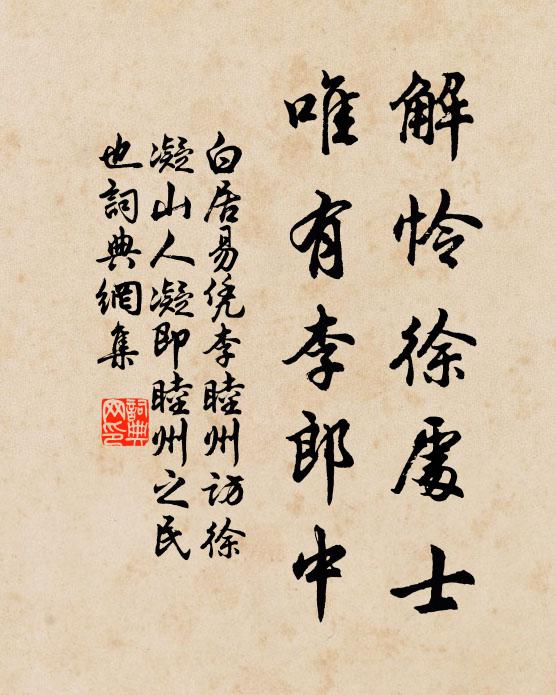 解怜徐處士
唯有李郎中
白居易凭李睦州訪徐
凝山人凝即睦州之民
也詞典網集
詞典網印